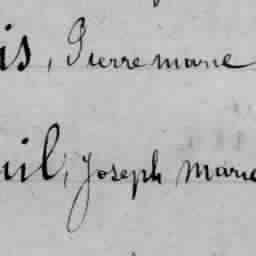 is, Pierre marie
uil, Joseph marie